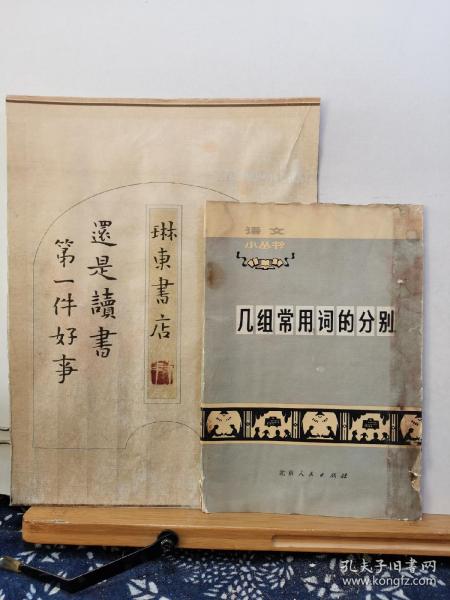 琳東書店
還是讀書
第一件好事
语文
小丛书
几组常用词的分别
北京人民出版社
孔夫子旧书网
www.kongfz.com